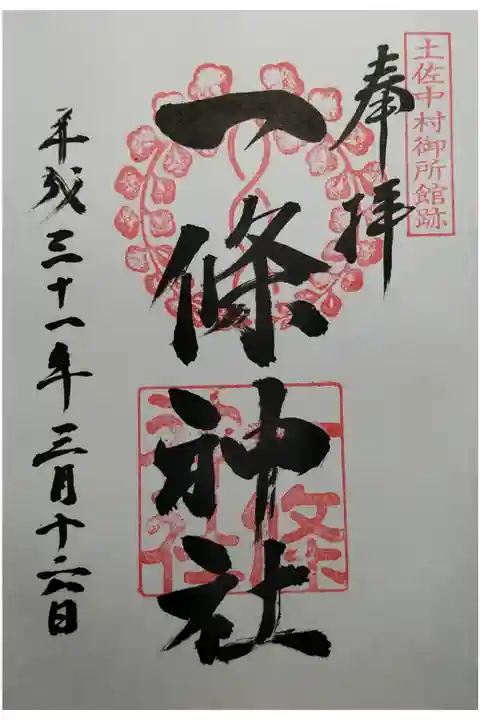 土佐中村御所館跡
奉拝
一條神社
平成三十一年三月十六日